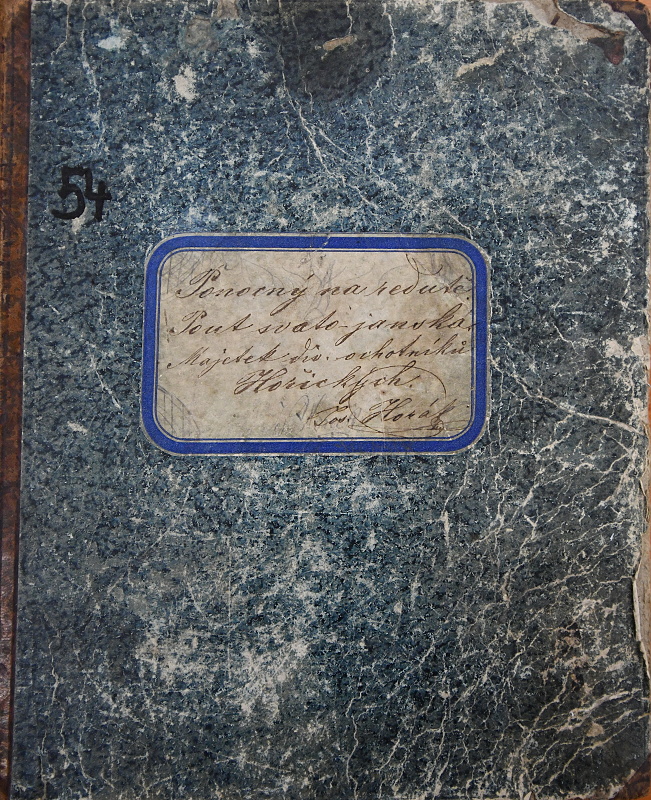 54
Ponocný na redutě.
Pouť svato-janská.
Majetek div. ochotníků
Hořických.
Jos. Horák